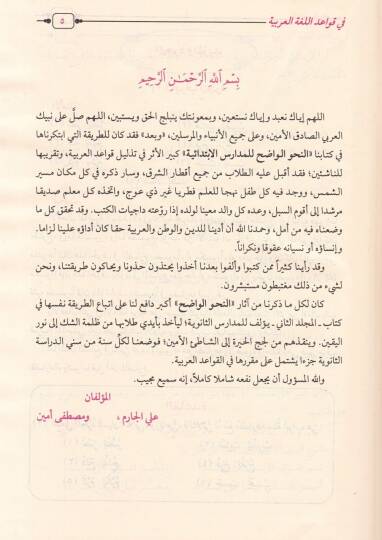 في قواعد اللغة العربية
٥
بِسْمِ اللَّهِ الرَّحْمَـٰنِ الرَّحِيمِ
اللهم إياك نعبد وإياك نستعين، وبمعونتك ينبلج الحق ويستبين، اللهم صلّ على نبيك
العربي الصادق الأمين، وعلى جميع الأنبياء والمرسلين، «وبعد» فقد كان للطريقة التي ابتكرناها
في كتابنا «النحو الواضح للمدارس الابتدائية» كبير الأثر في تذليل قواعد العربية، وتقريبها
للناشئين؛ فقد أقبل عليه الطلاب من جميع أقطار الشرق، وسار ذكره في كل مكان مسير
الشمس، ووجد فيه كل طفل نهجا للعلم فطريا غير ذي عوج، واتخذه كل معلم صديقا
مرشدا إلى أقوم السبل، وعده كل والد معينا لولده إذا روّعته داجيات الكتب. وقد تحقق كل ما
وضعناه فيه من أمل، وحمدنا الله أن أدينا للدين والوطن والعربية حقا كان أداؤه علينا لزاما.
وإنساؤه أو نسيانه عقوقا ونكرانا.
وقد رأينا كثيراً ممن كتبوا وألفوا بعدنا أخذوا يحتذون حذونا ويحاكون طريقتنا، ونحن
لشيء من ذلك مغتبطون مستبشرون.
كان لكل ما ذكرنا من آثار «النحو الواضح» أكبر دافع لنا على اتباع الطريقة نفسها في
كتاب ـ المجلد الثاني ـ يؤلف للمدارس الثانوية؛ ليأخذ بأيدي طلابها من ظلمة الشك إلى نور
اليقين. وينقذهم من لجج الحيرة إلى الشاطئ الأمين؛ فوضعنا لكلّ سنة من سني الدراسة
الثانوية جزءا يشتمل على مقررها في القواعد العربية.
والله المسؤول أن يجعل نفعه شاملا كاملاً، إنه سميع مجيب.
المؤلفان
علي الجارم ، ومصطفى أمين